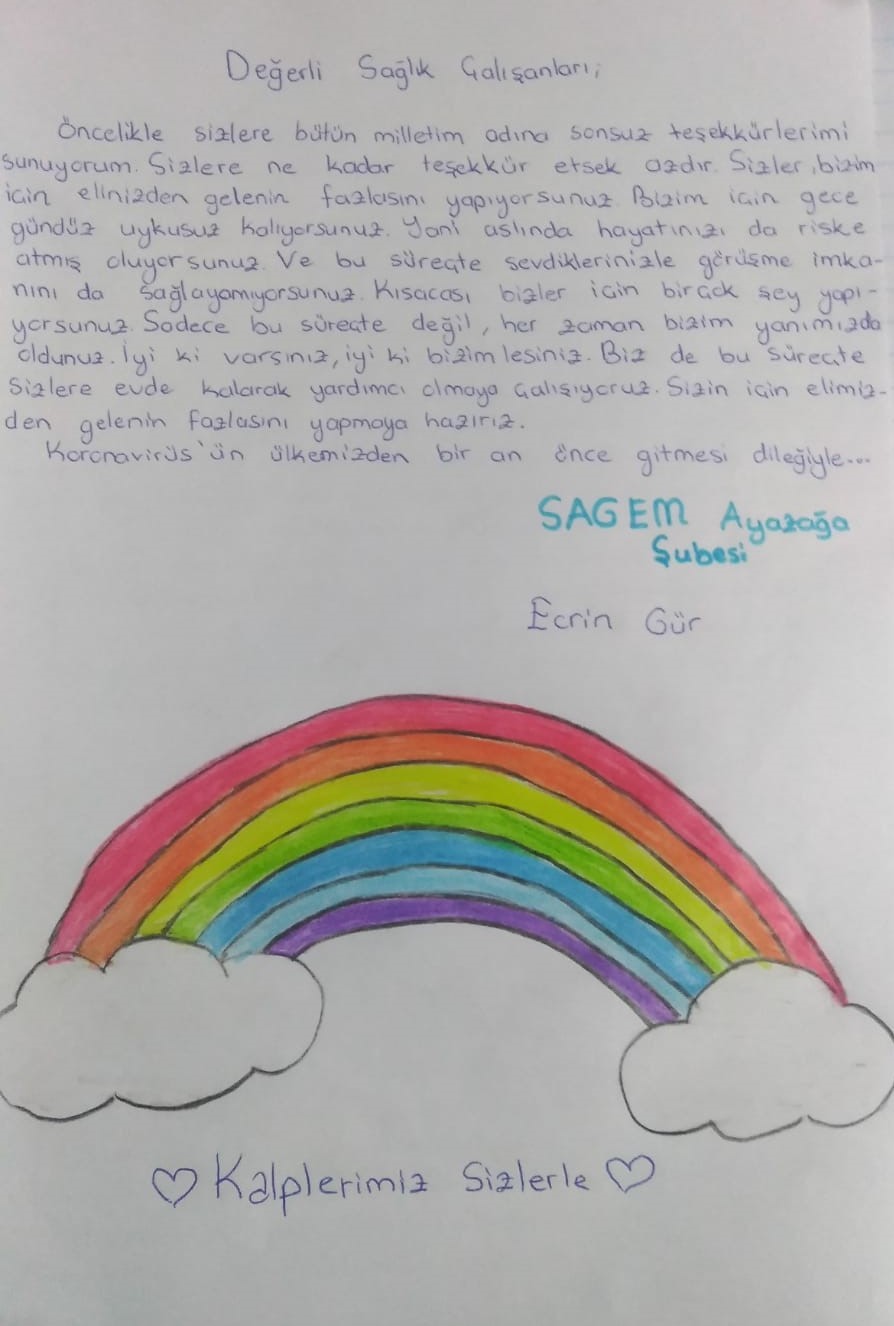 Değerli Sağlık Çalışanları;
Öncelikle sizlere bütün milletim adına sonsuz teşekkürlerimi
sunuyorum. Sizlere ne kadar teşekkür etsek azdır. Sizler, bizim
için elinizden gelenin fazlasını yapıyorsunuz. Bizim için gece
gündüz uykusuz kalıyorsunuz. Yani aslında hayatınızı da riske
atmış oluyorsunuz. Ve bu süreçte sevdiklerinizle görüşme imka-
nını da sağlayamıyorsunuz. Kısacası bizler için birçok şey yapı-
yorsunuz. Sadece bu süreçte değil, her zaman bizim yanımızda
oldunuz. İyi ki varsınız, iyi ki bizimlesiniz. Biz de bu süreçte
Sizlere evde kalarak yardımcı olmaya çalışıyoruz. Sizin için elimiz-
den gelenin fazlasını yapmaya hazırız.
Koronavirüs'ün ülkemizden bir an önce gitmesi dileğiyle...
SAGEM Ayazağa
Şubesi
Ecrin Gür
♡ Kalplerimiz Sizlerle ♡